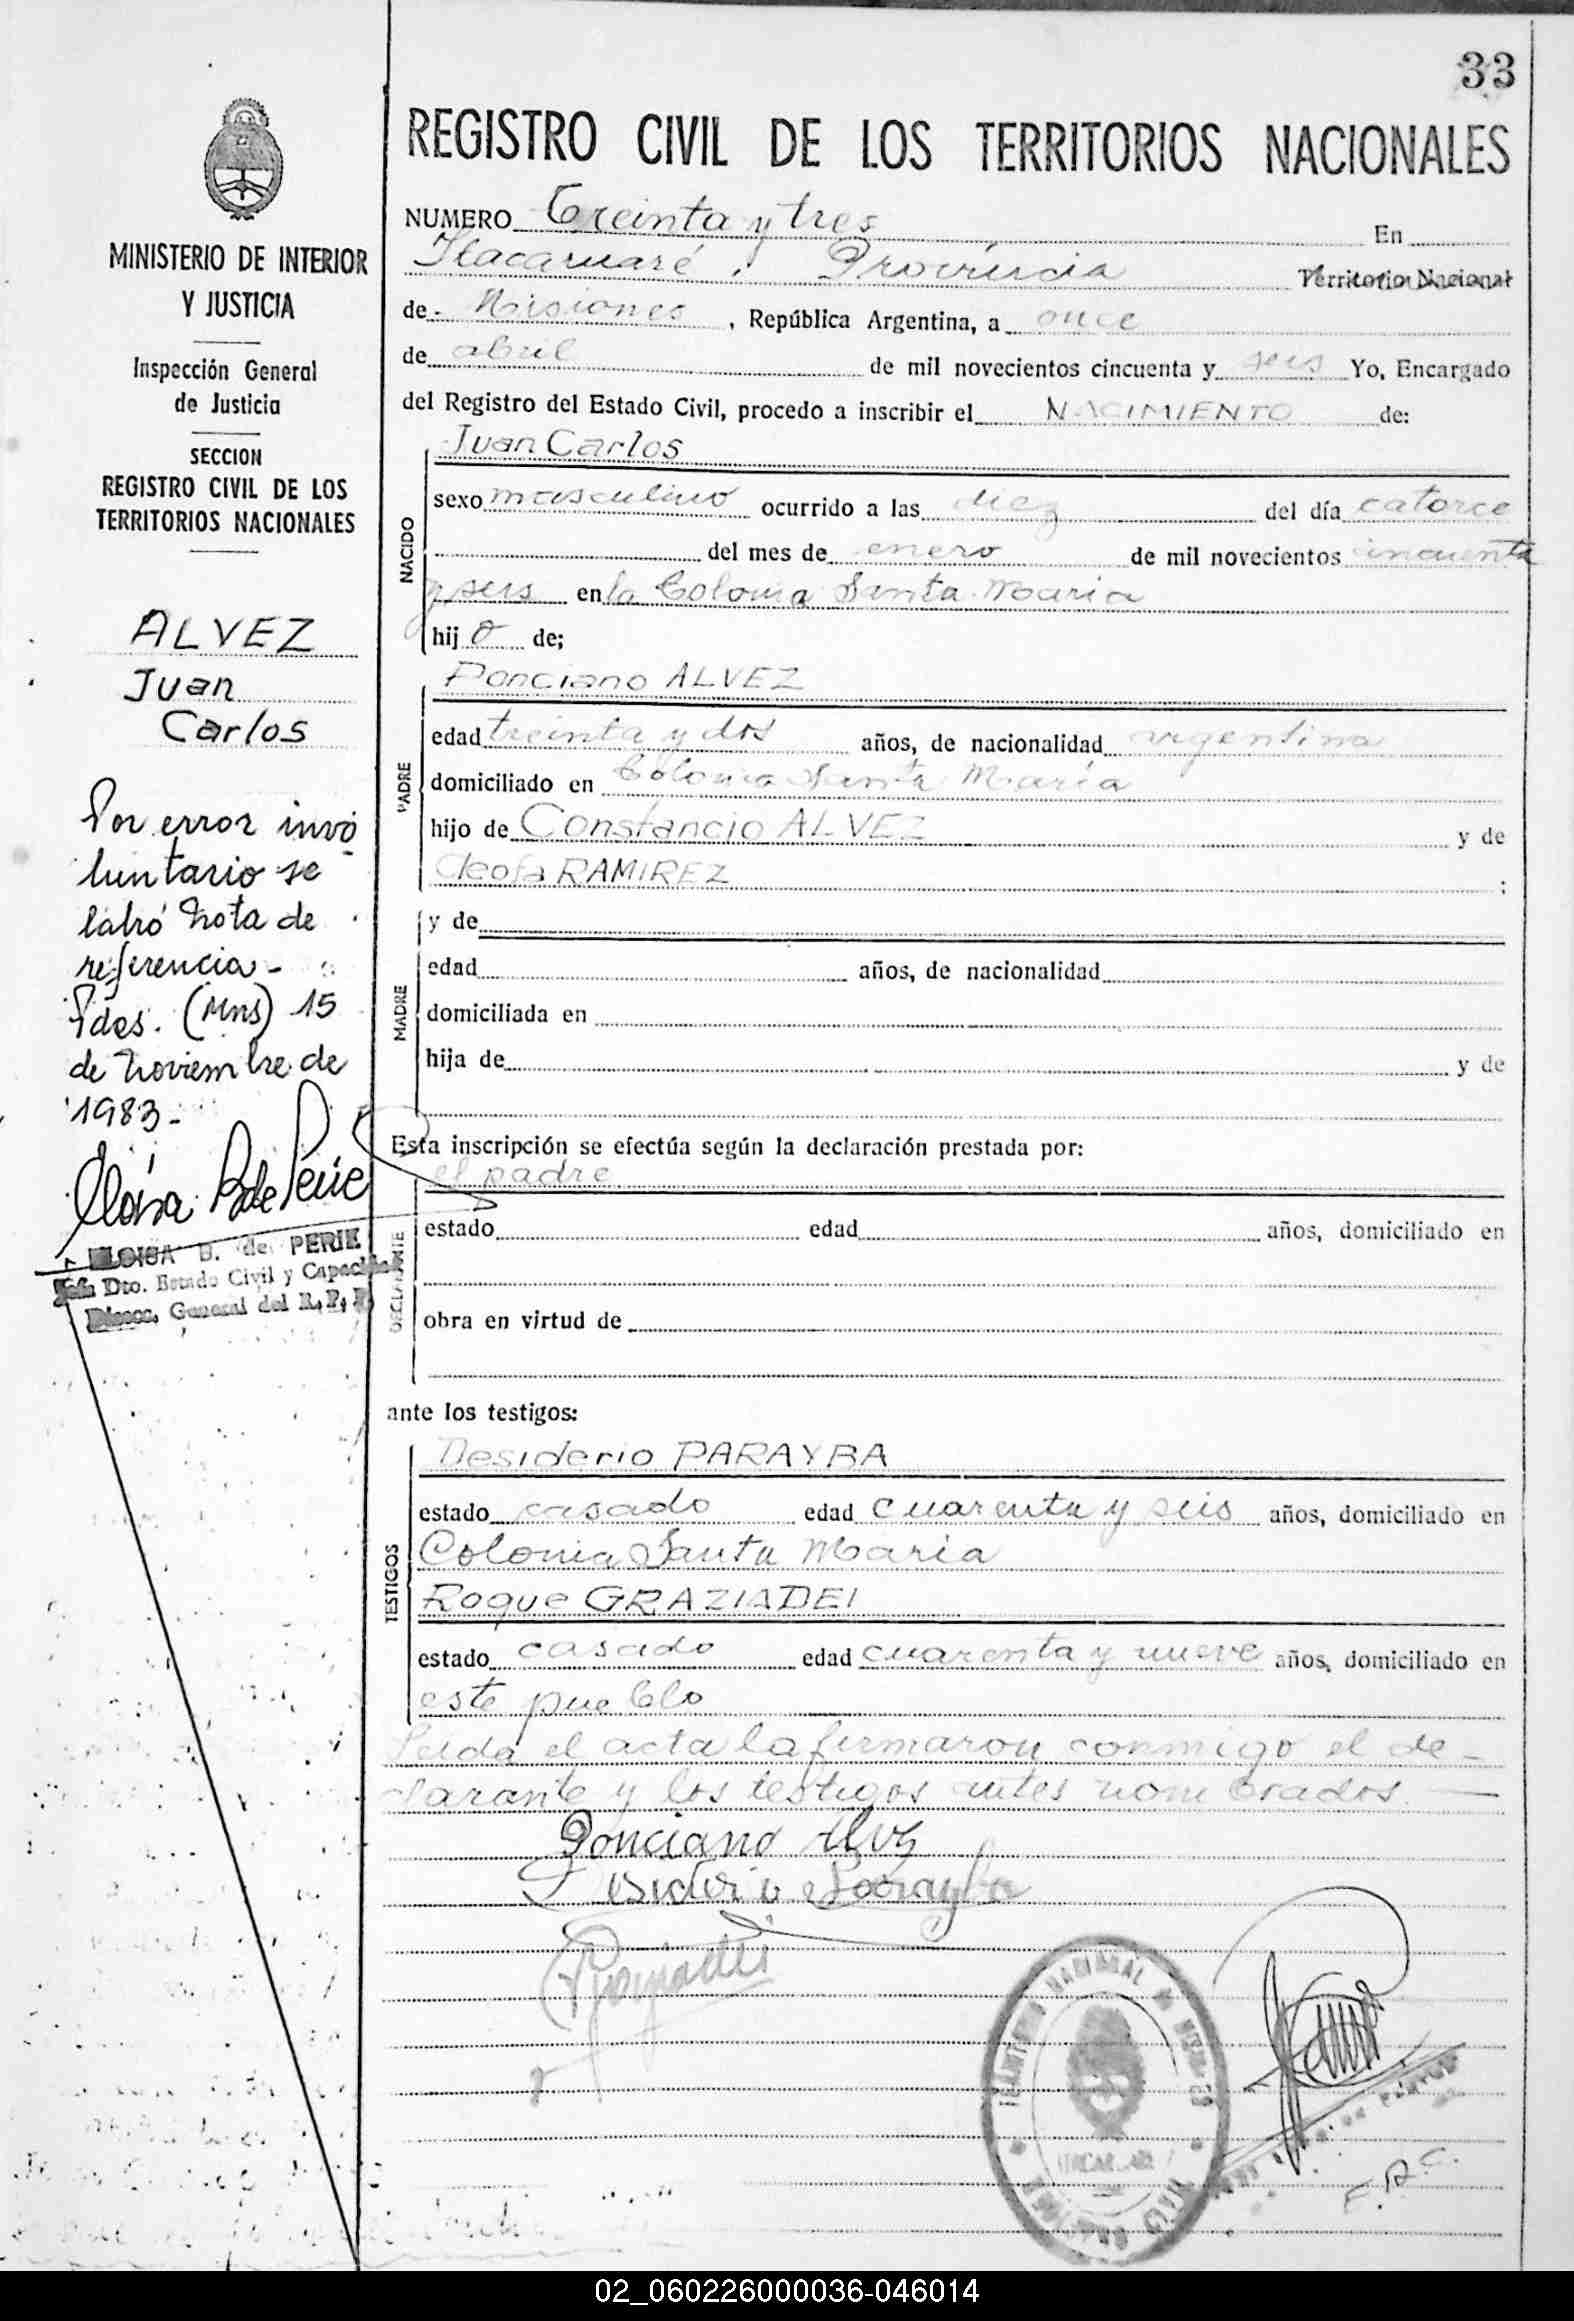 33
REGISTRO CIVIL DE LOS TERRITORIOS NACIONALES
MINISTERIO DE INTERIOR
Y JUSTICIA
Inspección General
de Justicia
SECCION
REGISTRO CIVIL DE LOS
TERRITORIOS NACIONALES
ALVEZ
Juan
Carlos
Por error invo
luntario se
labró Nota de
referencia-
Pdas. (Mns) 15
de Noviembre de
1983-
ELOISA B. de PERIE
Jefe Dto. Estado Civil y Capacidad
Direcc. General del R. P. P.
NUMERO Treinta y tres En
Itacaruaré, Provincia Territorio Nacional
de Misiones, República Argentina, a once
de abril de mil novecientos cincuenta y seis Yo, Encargado
del Registro del Estado Civil, procedo a inscribir el NACIMIENTO de:
NACIDO
Juan Carlos
sexo masculino ocurrido a las diez del día catorce
del mes de enero de mil novecientos cincuenta
y seis en la Colonia Santa Maria
hij o de;
PADRE
Ponciano ALVEZ
edad treinta y dos años, de nacionalidad argentina
domiciliado en Colonia Santa María
hijo de Constancio ALVEZ y de
Cleofa RAMIREZ ;
MADRE
y de
edad años, de nacionalidad
domiciliada en
hija de y de
Esta inscripción se efectúa según la declaración prestada por:
DECLARANTE
el padre
estado edad años, domiciliado en
obra en virtud de
ante los testigos:
TESTIGOS
Desiderio PARAYBA
estado casado edad cuarenta y seis años, domiciliado en
Colonia Santa Maria
Roque GRAZIADEI
estado casado edad cuarenta y nueve años, domiciliado en
este pueblo
Leida el acta la firmaron conmigo el de-
clarante y los testigos antes nombrados.
Ponciano Alvez
Desiderio Parayba
E.R.C.
02_060226000036-046014